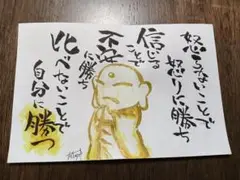 怒らないことで
怒りに勝ち
信じることで
不安に勝ち
比べないことで
自分に勝つ